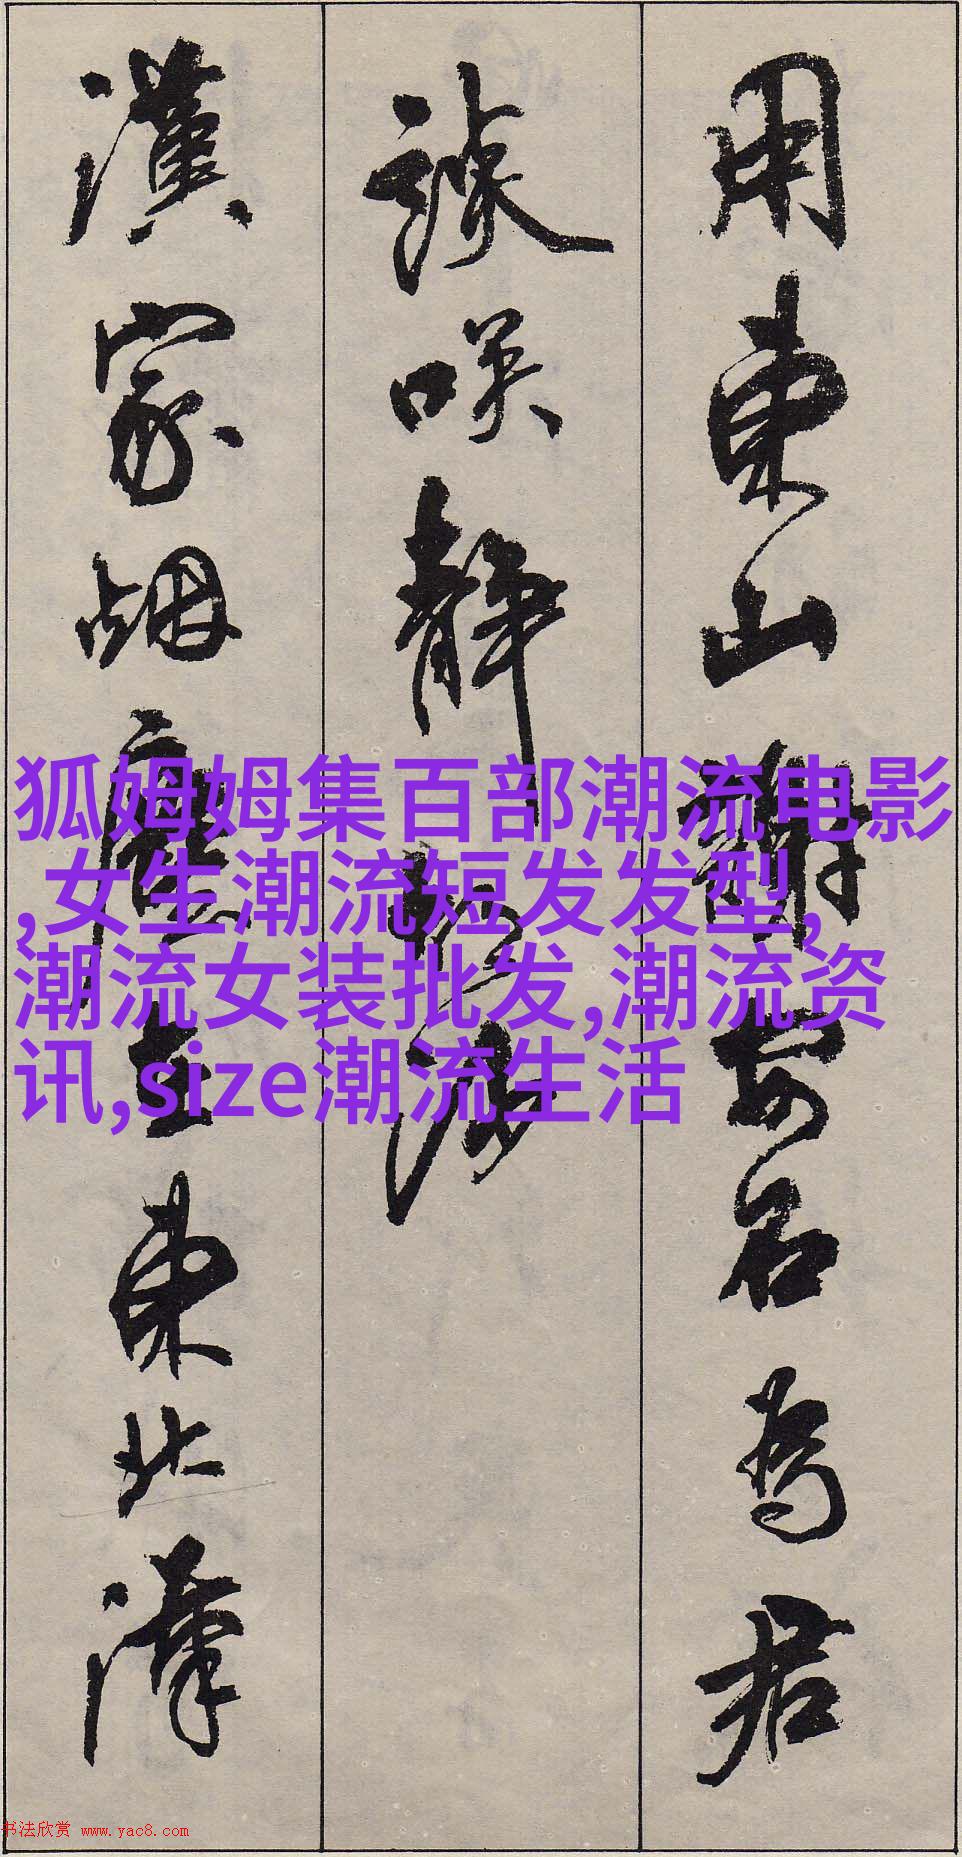 用東山謝安石為君
談笑靜胡沙
漢家烟塵在東北漢
狐姆姆集百部潮流电影
,女生潮流短发发型,
潮流女装批发,潮流资
讯,size潮流生活
书法欣赏 www.yac8.com